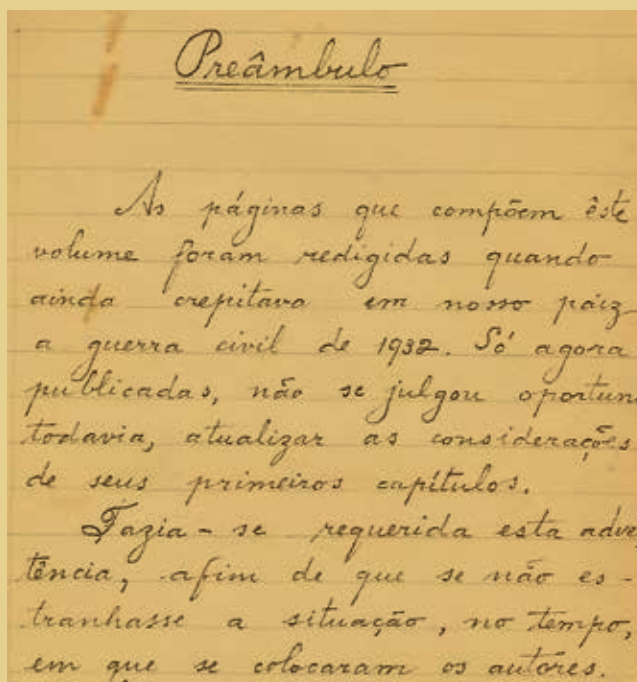 Preâmbulo
As páginas que compõem êste
volume foram redigidas quando
ainda crepitava em nosso paiz
a guerra civil de 1932. Só agora
publicadas, não se julgou oportun
todavia, atualizar as considerações
de seus primeiros capítulos.
Fazia-se requerida esta adver
tência, afim de que se não es-
tranhasse a situação, no tempo,
em que se colocaram os autores.